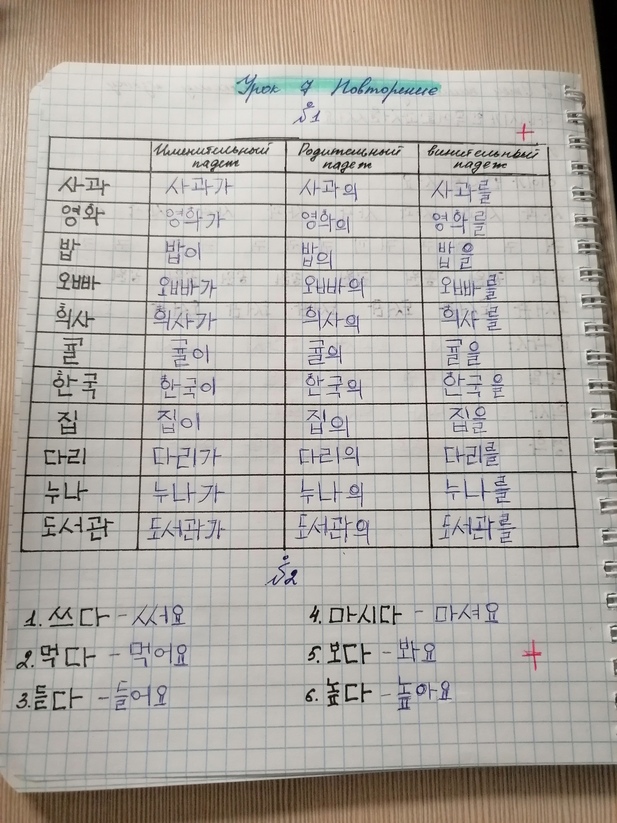 Урок 7 Повторение
№1
Именительный падеж Родительный падеж винительный падеж
사과 사과가 사과의 사과를
영화 영화가 영화의 영화를
밥 밥이 밥의 밥을
오빠 오빠가 오빠의 오빠를
회사 회사가 회사의 회사를
귤 귤이 귤의 귤을
한국 한국이 한국의 한국을
집 집이 집의 집을
다리 다리가 다리의 다리를
누나 누나가 누나의 누나를
도서관 도서관가 도서관의 도서관를
№2
1. 쓰다 - 써요 4. 마시다 - 마셔요
2. 먹다 - 먹어요 5. 보다 - 봐요
3. 들다 - 들어요 6. 높다 - 높아요